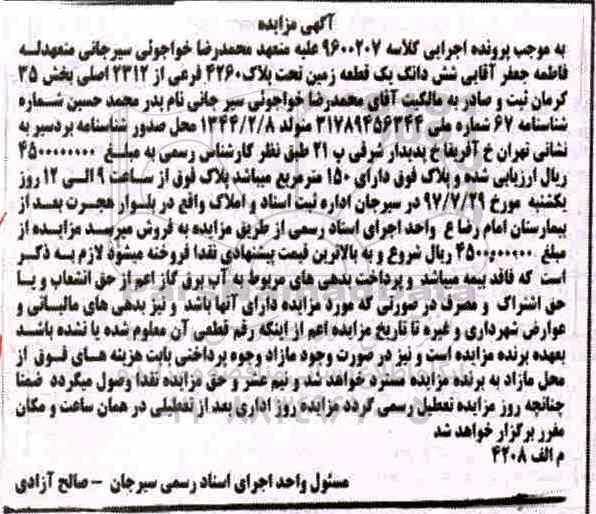 آگهی مزایده
به موجب پرونده اجرایی کلاسه ۹۶۰۰۲۰۷ علیه متعهد محمدرضا خواجوئی سیرجانی متعهدله
فاطمه جعفر آقایی شش دانگ یک قطعه زمین تحت پلاک ۴۲۶۰ فرعی از ۲۳۱۲ اصلی بخش ۳۵
کرمان ثبت و صادر به مالکیت آقای محمدرضا خواجوئی سیر جانی نام پدر محمد حسین شماره
شناسنامه ۶۷ شماره ملی ۳۱۷۸۹۴۵۶۳۴۴ متولد ۱۳۴۴/۲/۸ محل صدور شناسنامه بردسیر به
نشانی تهران خ آفریقا خ پدیدار شرقی پ ۲۱ طبق نظر کارشناس رسمی به مبلغ ۴۵۰۰۰۰۰۰۰۰
ریال ارزیابی شده و پلاک فوق دارای ۱۵۰ مترمربع میباشد پلاک فوق از ساعت ۹ الی ۱۲ روز
یکشنبه مورخ ۹۷/۷/۲۹ در سیرجان اداره ثبت اسناد و املاک واقع در بلوار هجرت بعد از
بیمارستان امام رضا ع واحد اجرای اسناد رسمی از طریق مزایده به فروش میرسد مزایده از
مبلغ ۴۵۰۰۰۰۰۰۰۰ ریال شروع و به بالاترین قیمت پیشنهادی نقدا فروخته میشود لازم به ذکر
است که فاقد بیمه میباشد و پرداخت بدهی های مربوط به آب برق گاز اعم از حق انشعاب و یا
حق اشتراک و مصرف در صورتی که مورد مزایده دارای آنها باشد و نیز بدهی های مالیاتی و
عوارض شهرداری و غیره تا تاریخ مزایده اعم از اینکه رقم قطعی آن معلوم شده یا نشده باشد
بعهده برنده مزایده است و نیز در صورت وجود مازاد وجوه پرداختی بابت هزینه های فوق از
محل مازاد به برنده مزایده مسترد خواهد شد و نیم عشر و حق مزایده نقدا وصول میگردد ضمنا
چنانچه روز مزایده تعطیل رسمی گردد مزایده روز اداری بعد از تعطیلی در همان ساعت و مکان
مقرر برگزار خواهد شد
م الف ۴۲۰۸
مسئول واحد اجرای اسناد رسمی سیرجان - صالح آزادی